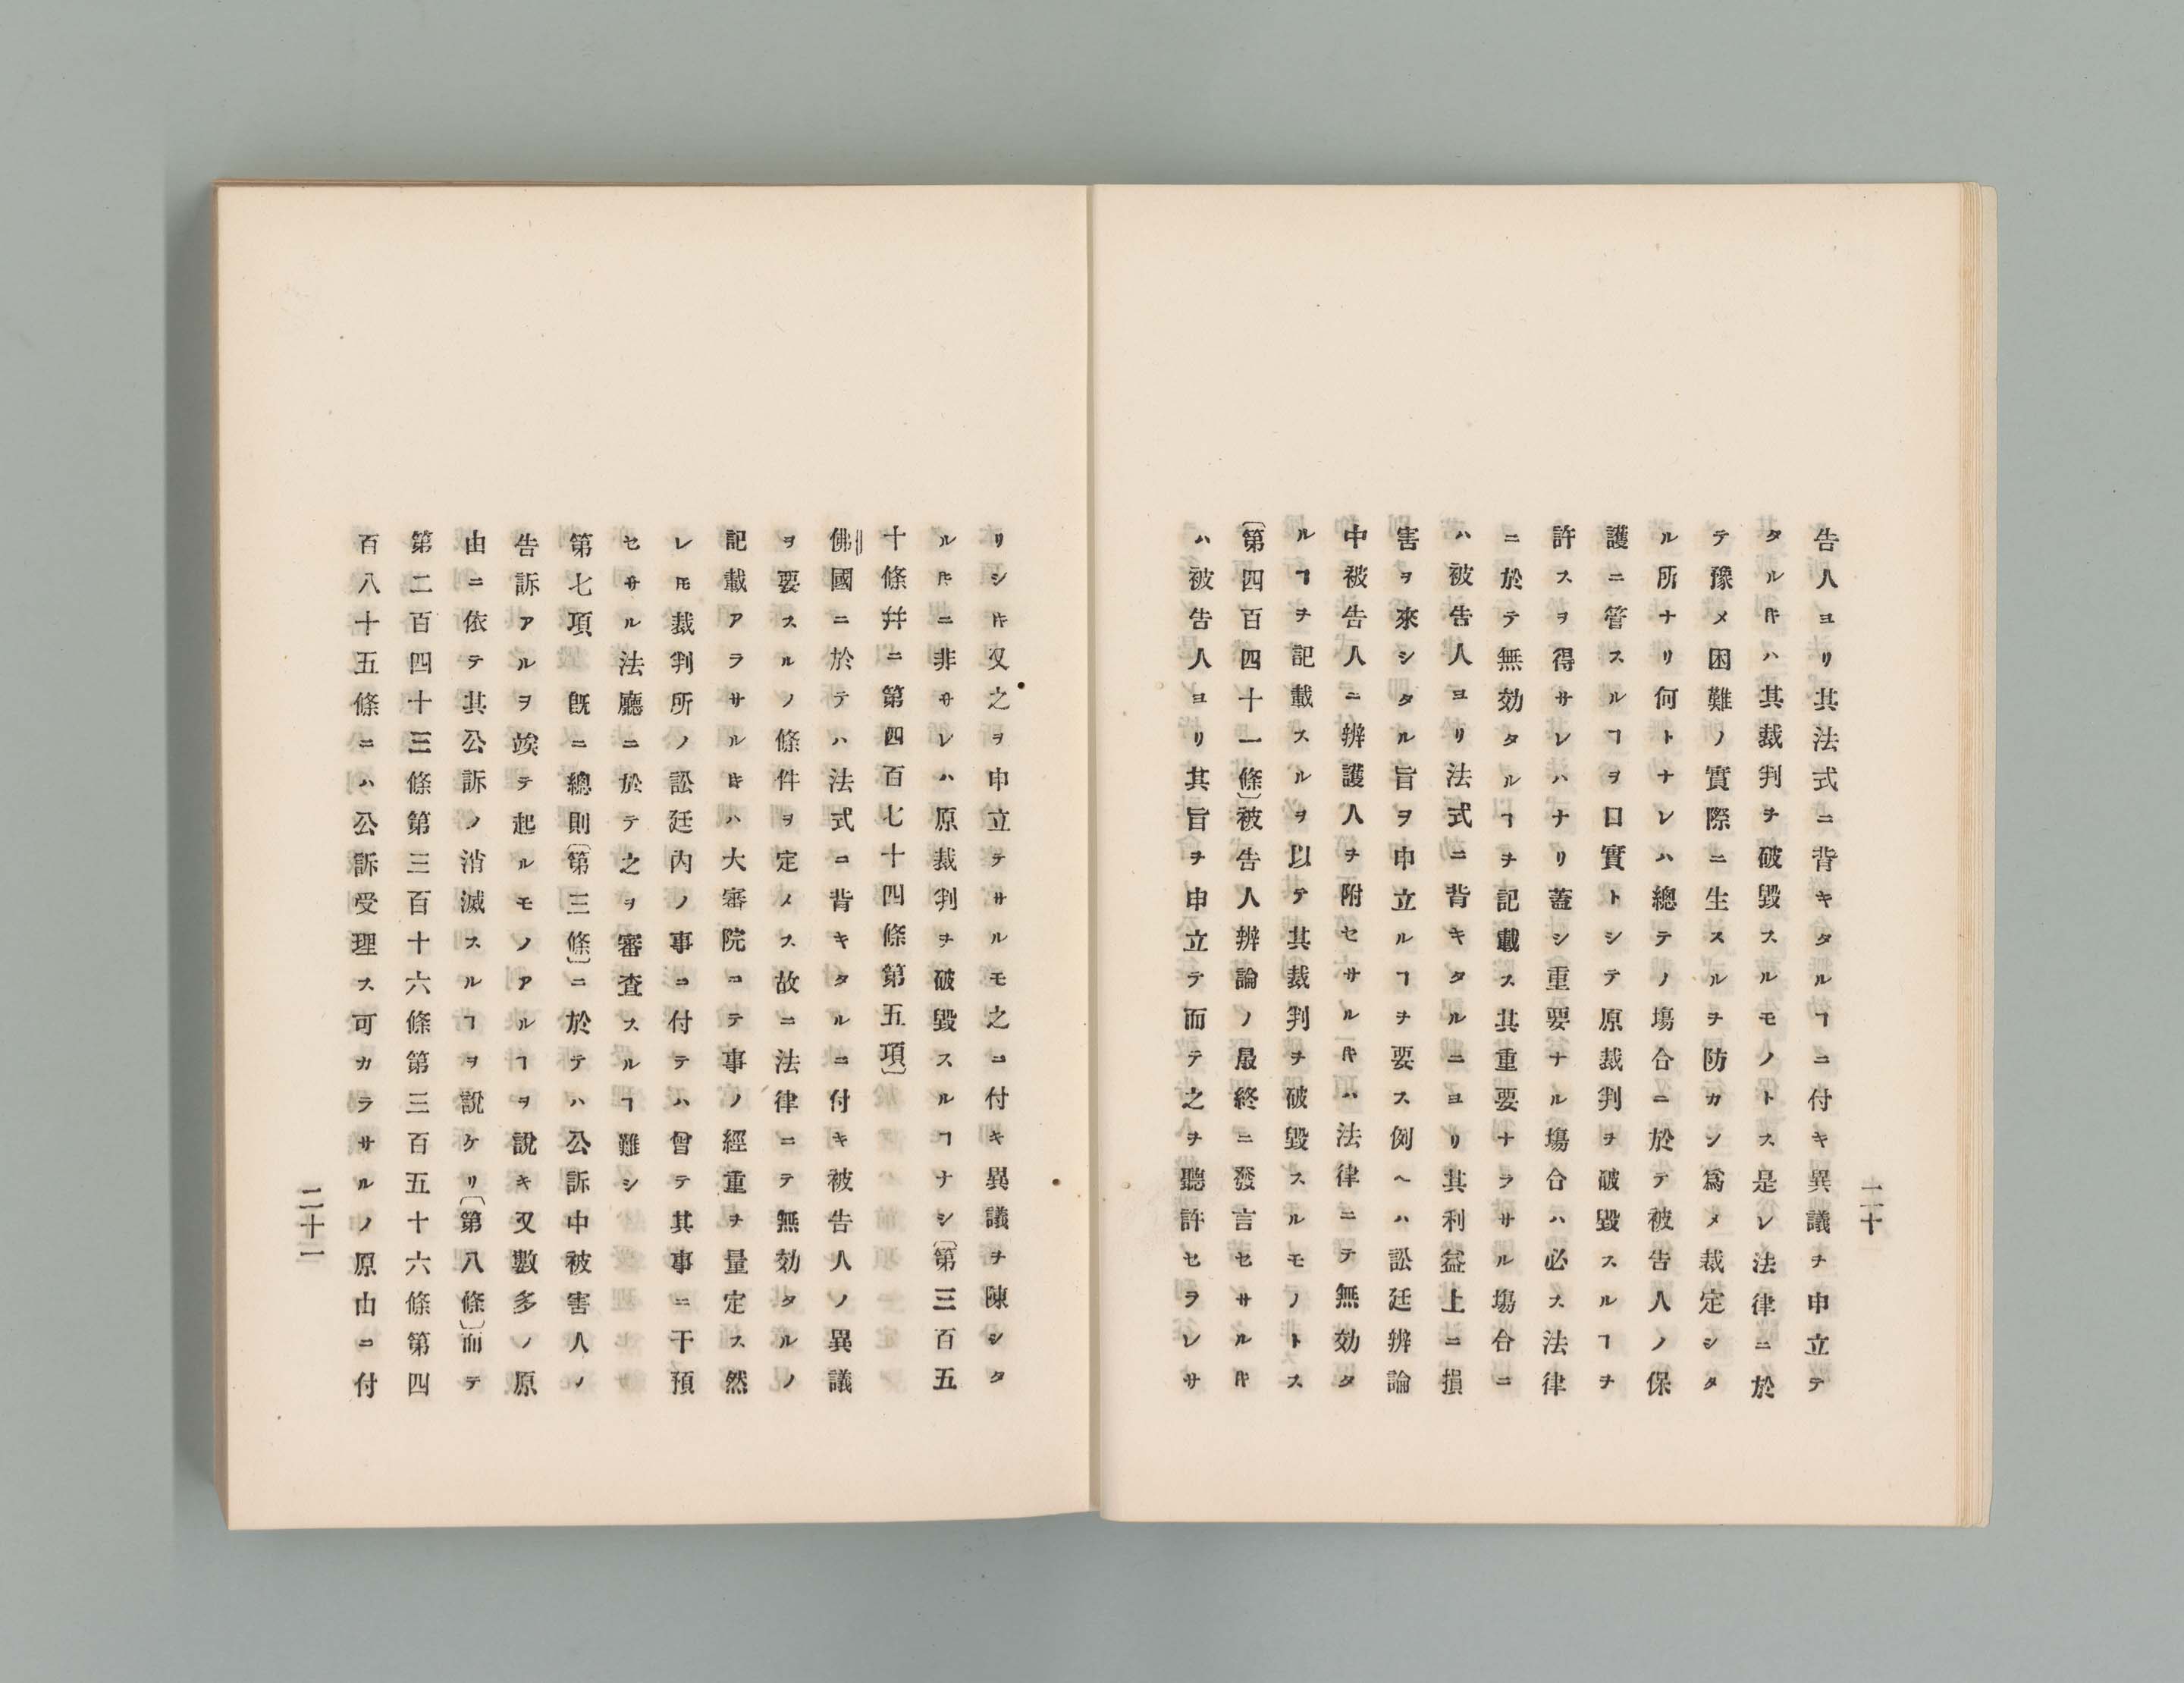 二十
告人ヨリ其法式ニ背キタルヿニ付キ異議ヲ申立テ
タルㇳキハ其裁判ヲ破毀スルモノトス是レ法律ニ於
テ豫メ困難ノ實際ニ生スルヲ防カン爲メ裁定シタ
ル所ナリ何トナレハ總テノ塲合ニ於テ被告人ノ保
護ニ管スルヿヲ口實トシテ原裁判ヲ破毀スルヿヲ
許スヲ得サレハナリ蓋シ重要ナル塲合ハ必ス法律
ニ於テ無効タルヿヲ記載ス其重要ナラサル塲合ニ
ハ被告人ヨリ法式ニ背キタルニヨリ其利益上ニ損
害ヲ來シタル旨ヲ申立ルヿヲ要ス例ヘハ訟廷辨論
中被告人ニ辨護人ヲ附セサルㇳキハ法律ニテ無効タ
ルヿヲ記載スルヲ以テ其裁判ヲ破毀スルモノトス
〔第四百四十一條〕被告人辨論ノ最終ニ發言セサルㇳキ
ハ被告人ヨリ其旨ヲ申立テ而テ之ヲ聽許セラレサ
リシㇳキ又之ヲ申立テサルモ之ニ付キ異議ヲ陳シタ
ルㇳキニ非サレハ原裁判ヲ破毀スルヿナシ〔第三百五
十條幷ニ第四百七十四條第五項〕
佛國ニ於テハ法式ニ背キタルニ付キ被告人ノ異議
ヲ要スルノ條件ヲ定メス故ニ法律ニテ無効タルノ
記載アラサルㇳキハ大審院ニテ事ノ經重ヲ量定ス然
レㇳモ裁判所ノ訟廷内ノ事ニ付テハ曾テ其事ニ干預
セサル法廳ニ於テ之ヲ審査スルヿ難シ
第七項 既ニ總則〔第三條〕ニ於テハ公訴中被害人ノ
告訴アルヲ竢テ起ルモノアルヿヲ說キ又數多ノ原
由ニ依テ其公訴ノ消滅スルヿヲ說ケリ〔第八條〕而テ
第二百四十三條第三百十六條第三百五十六條第四
百八十五條ニハ公訴受理ス可カラサルノ原由ニ付
二十一